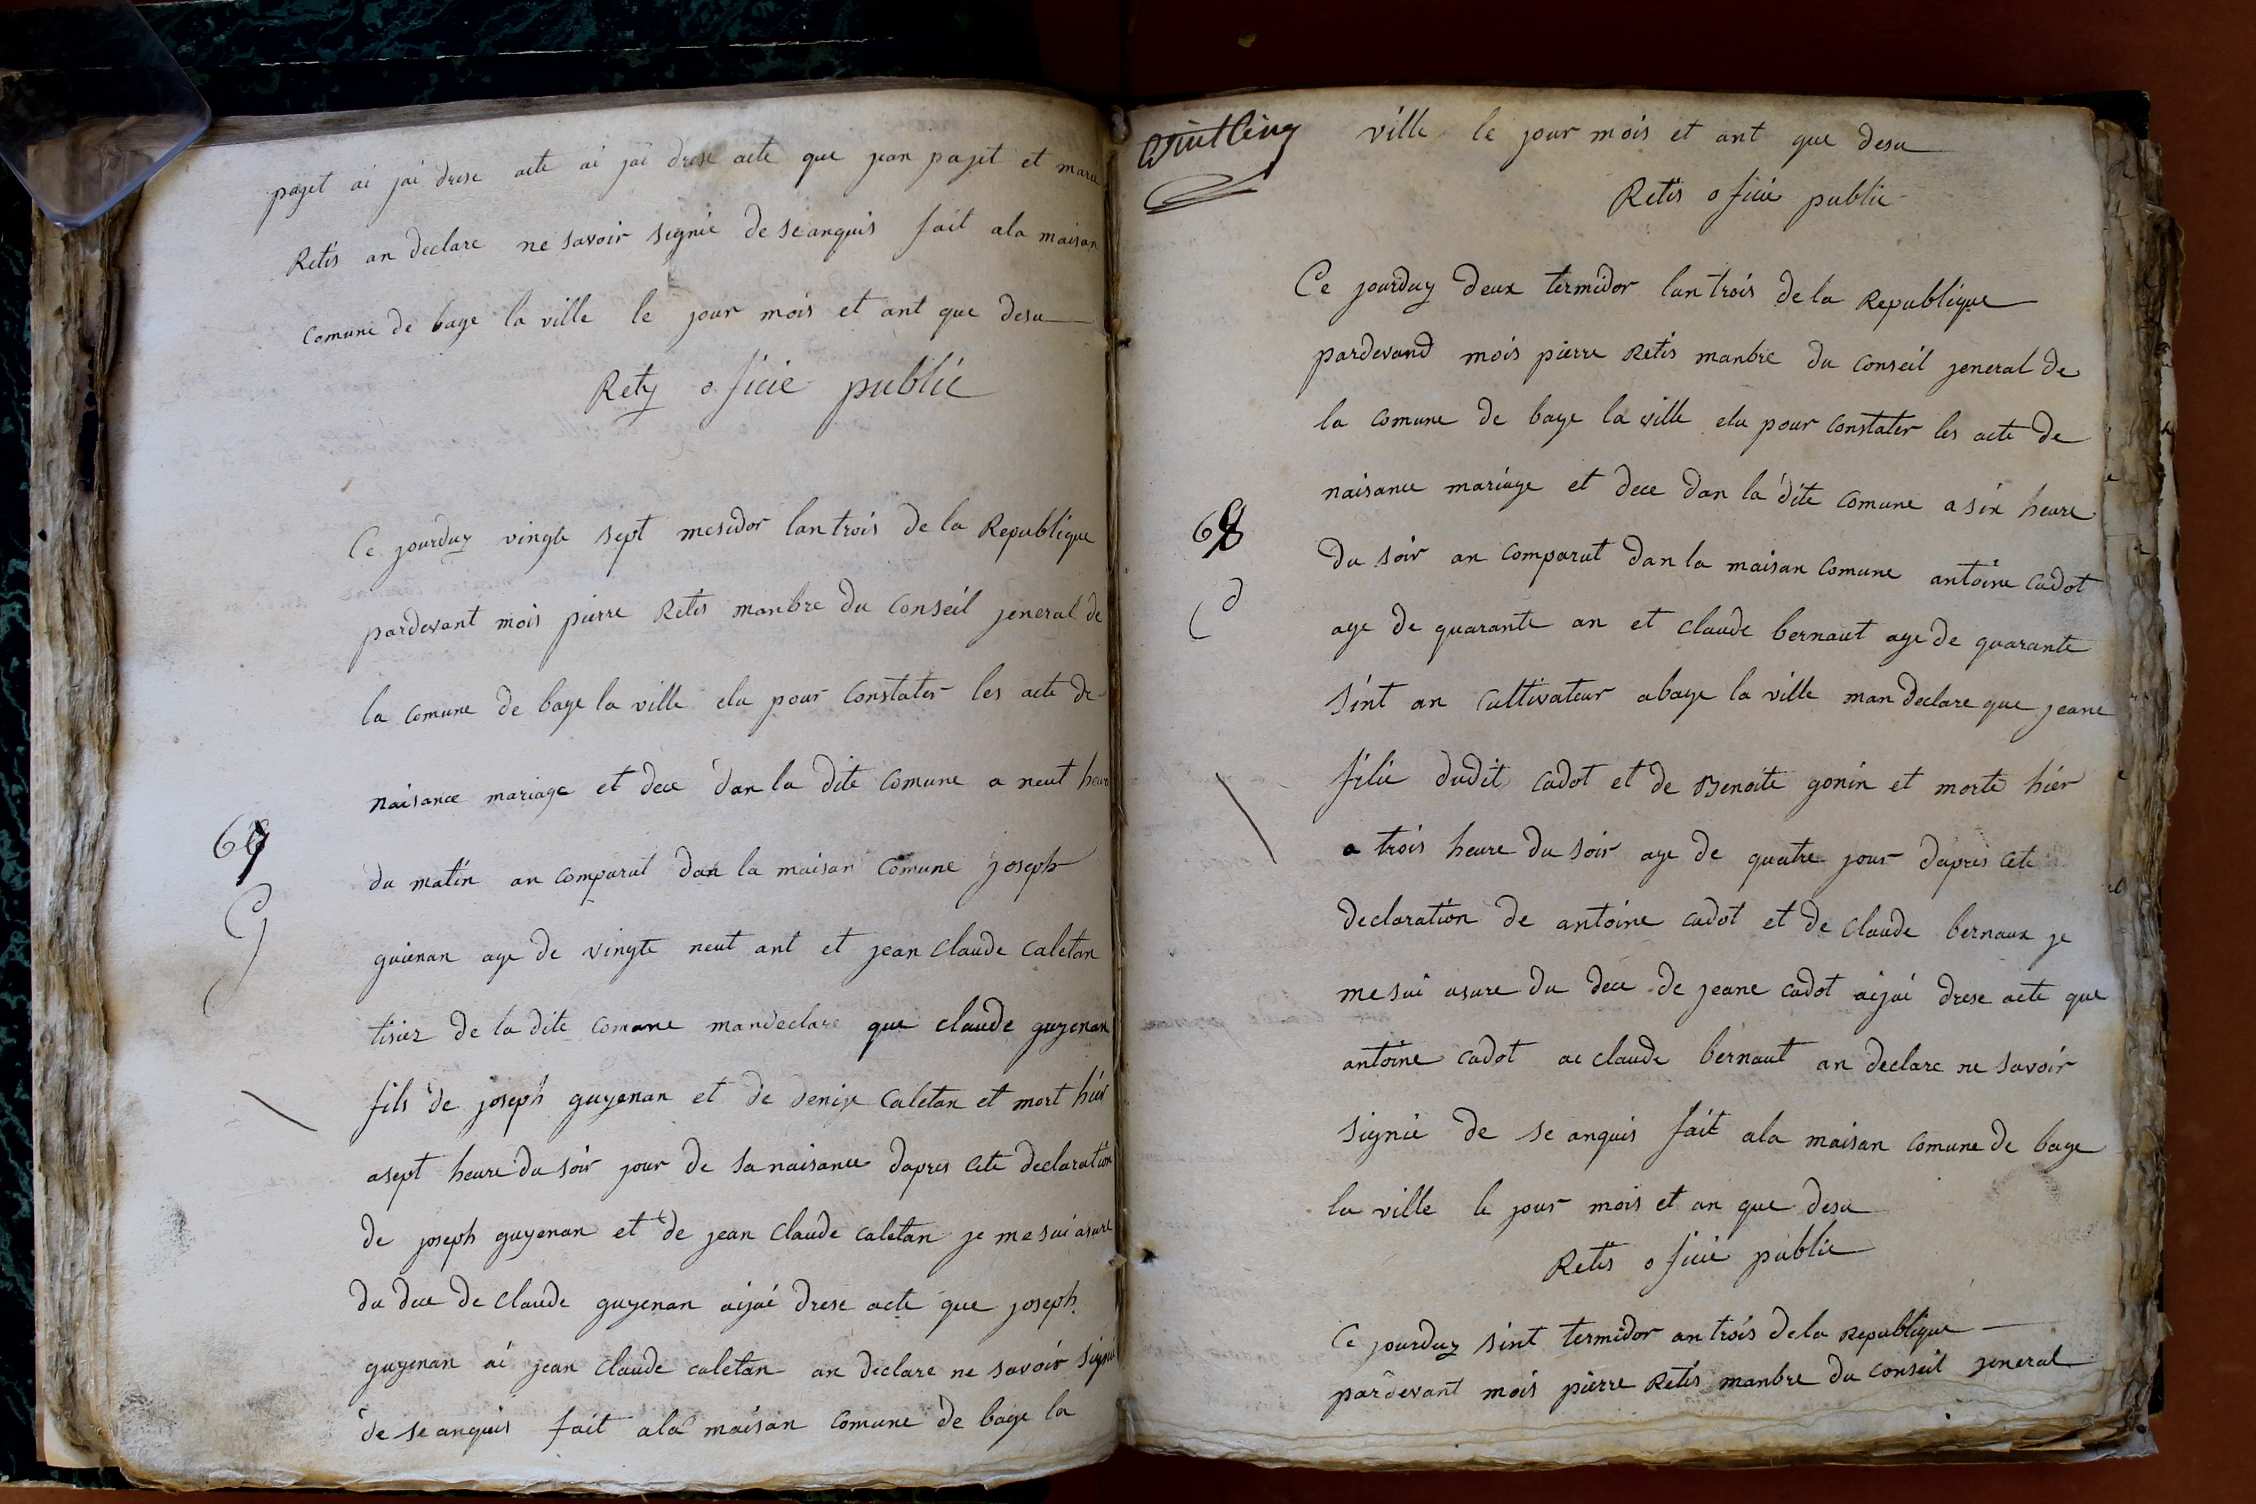 pajet ai jai drese acte ai jai drese acte que jean pajet et marie
Retis an declare ne savoir signie de seanquis fait ala maison
comune de bage la ville le jour mois et ant que desu
Rety oficie public
Ce jourduy vingte sept mesidor lan trois de la Republique
pardevant mois pierre Retis manbre du conseil jeneral de
la comune de bage la ville elu pour constater les acte de
naisance mariage et dece dan la dite comune a neut heure
67
du matin an comparut dan la maison comune joseph
guienan age de vingte neut ant et jean claude caletan
tisiez de la dite comune mandeclare que claude guyenan
fils de joseph guyenan et de denise caletan et mort hier
asept heure du soir jour de sa naisance dapres cete declaration
de joseph guyenan et de jean claude caletan je me sui asure
du dece de claude guyenan aijai drese acte que joseph
guyenan ai jean claude caletan an declare ne savoir signie
de se anquis fait ala maison comune de bage la
ville le jour mois et ant que desu
Retis oficie public
Ce jourduy deux termidor lan trois de la Republique
pardevand mois pierre Retis manbre du conseil jeneral de
la comune de bage la ville elu pour constater les acte de
naisance mariage et dece dan la dite comune a six heure
68
du soir an comparut dan la maison comune antoine cadot
age de quarante an et claude bernaut age de quarante
sint an cultivateur abage la ville man declare que jeane
filie dudit cadot et de Benoite gonin et morte hier
a trois heure du soir age de quatre jour dapres cete
declaration de antoine cadot et de claude bernaux je
me sui asure du dece de jeane cadot aijai drese acte que
antoine cadot ae claude bernaut an declare ne savoir
signie de se anquis fait ala maison comune de bage
la ville le jour mois et an que desu
Retis oficie public
Ce jourduy sint termidor an trois dela Republique
pardevant mois pierre Retis manbre du conseil jeneral